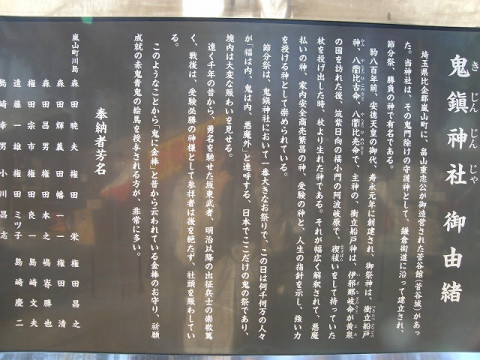 きじんじんじゃ
鬼鎮神社御由緒
埼玉県比企郡嵐山町に、畠山重忠公が御造営された菅谷館（菅谷城）があっ
た。当神社は、その鬼門除けの守護神として、鎌倉街道に沿って建立され、
節分祭、勝負の神で有名である。
約八百年前、安徳天皇の御代、寿永元年に創建され、御祭神は、衝立船戸
神、八衢比古命、八衢比売命で、主神の、衝立船戸神は、伊邪那岐命が黄泉
の国を訪れた後、筑紫日向の橘小門の阿波岐原で、禊祓いをして持っていた
杖を投げ出した時、杖より生れた神である。それが幅広く解釈されて、悪魔
払いの神、家内安全商売繁昌の神、受験の神と、人生の指針を示し、強い力
を授ける神として崇められている。
節分祭は、鬼鎮神社において一番大きなお祭りで、この日は何千何万の人々
が「福は内、鬼は内、悪魔外」と連呼する、日本でここだけの鬼の祭であり、
境内は大変な賑わいを見せる。
遠く千年の昔から、勇名を馳せた坂東武者、明治以降の出征兵士の崇敬篤
く、戦後は、受験必勝の神様として参拝者は後を絶たず、社頭を賑わしてい
る。
このようなことから「鬼に金棒」と昔から云われている金棒のお守り、祈願
成就の赤鬼青鬼の絵馬を授与される方が、非常に多い。
奉納者芳名
嵐山町川島
森田暁夫 権田栄 権田昌之
森田輝義 田幡一一 権田清
森田昌男 権田本之 嶋嵜勝也
権田宗市 権田良一 島﨑文夫
遠藤一雄 権田ミツ子 島﨑慶二
島﨑幸男 小川昌志